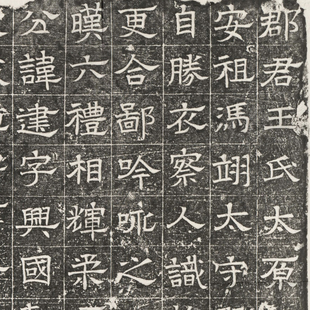 郡君王氏太原
安祖馮翊太守
自勝衣察人識
更合鄙吟咏之
暵六禮相輝柔
公諱建字興國